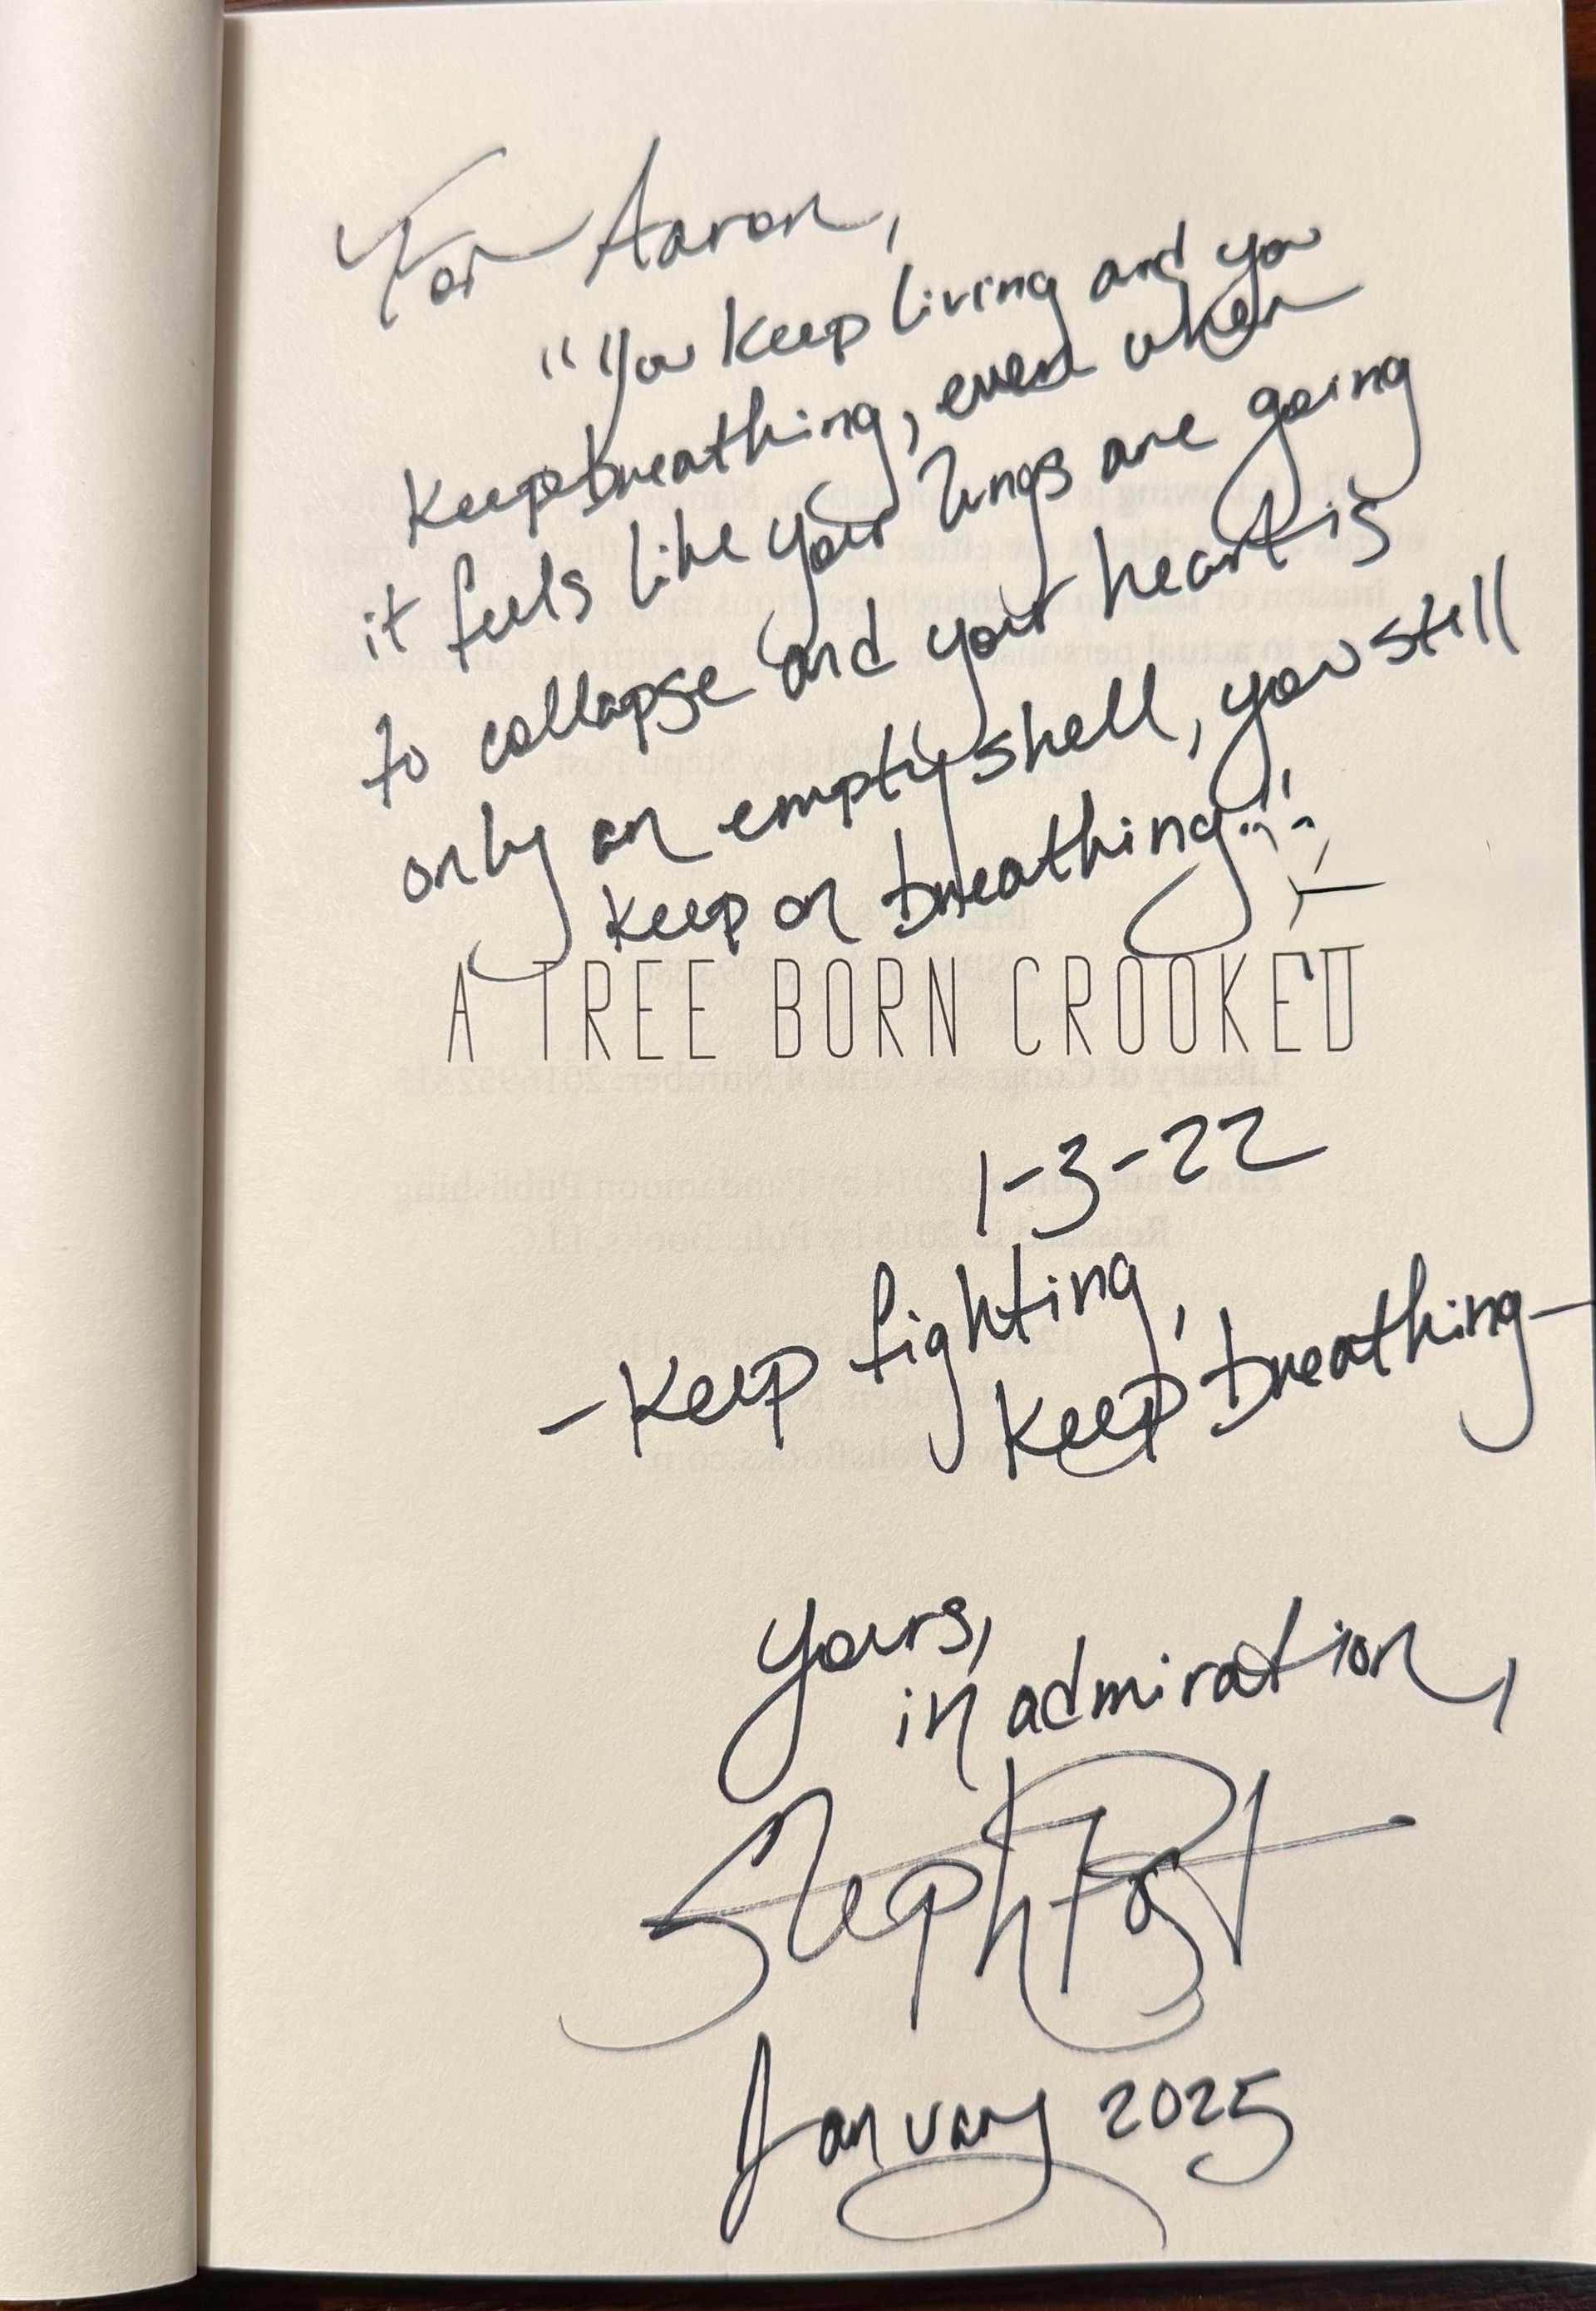 For Aaron,
"You keep living and you
keep breathing, even when
it feels like your lungs are going
to collapse and your heart is
only an empty shell, you still
keep on breathing..."
A TREE BORN CROOKED
1-3-22
- Keep fighting,
keep breathing -
Yours,
in admiration,
Steph Post
January 2025